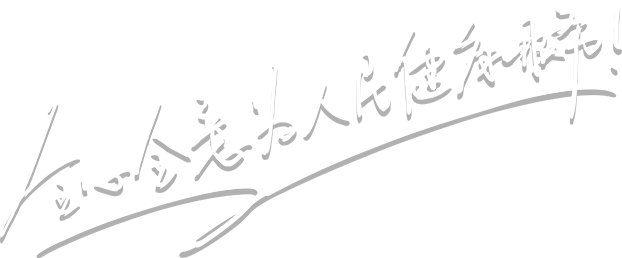 全心全意为人民健康服务！